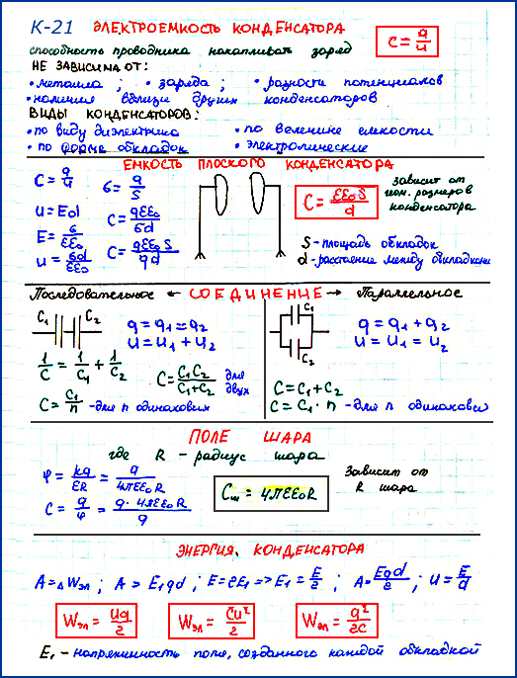 К-21 ЭЛЕКТРОЕМКОСТЬ КОНДЕНСАТОРА
способность проводника накапливать заряд
C = q/u
НЕ ЗАВИСИМА ОТ:
• металла; • заряда; • разности потенциалов
• наличия вблизи других конденсаторов
ВИДЫ КОНДЕНСАТОРОВ:
• по виду диэлектрика • по величине емкости
• по форме обкладок • электролические
ЕМКОСТЬ ПЛОСКОГО КОНДЕНСАТОРА
C = q/u
б = q/S
u = Ed
C = qεε₀/бd
E = б/εε₀
C = qεε₀S/qd
u = бd/εε₀
C = εε₀S/d
зависит от
геом. размеров
конденсатора
S - площадь обкладок
d - расстояние между обкладками
Последовательное ← СОЕДИНЕНИЕ → Параллельное
C₁ C₂
q = q₁ = q₂
u = u₁ + u₂
1/C = 1/C₁ + 1/C₂
C = C₁C₂/C₁+C₂ для двух
C = C₁/n - для n одинаковых
C₁
C₂
q = q₁ + q₂
u = u₁ = u₂
C = C₁ + C₂
C = C₁ · n - для n одинаковых
ПОЛЕ ШАРА
где R - радиус шара
φ = kq/εR = q/4πεε₀R
C = q/φ = q · 4πεε₀R/q
Cш = 4πεε₀R
Зависит от
R шара
ЭНЕРГИЯ КОНДЕНСАТОРА
A = ΔWэл; A = E₁qd; E = 2E₁ => E₁ = E/2; A = Eqd/2; u = E/d
Wэл = uq/2
Wэл = cu²/2
Wэл = q²/2c
E₁ - напряженность поля, созданного каждой обкладкой